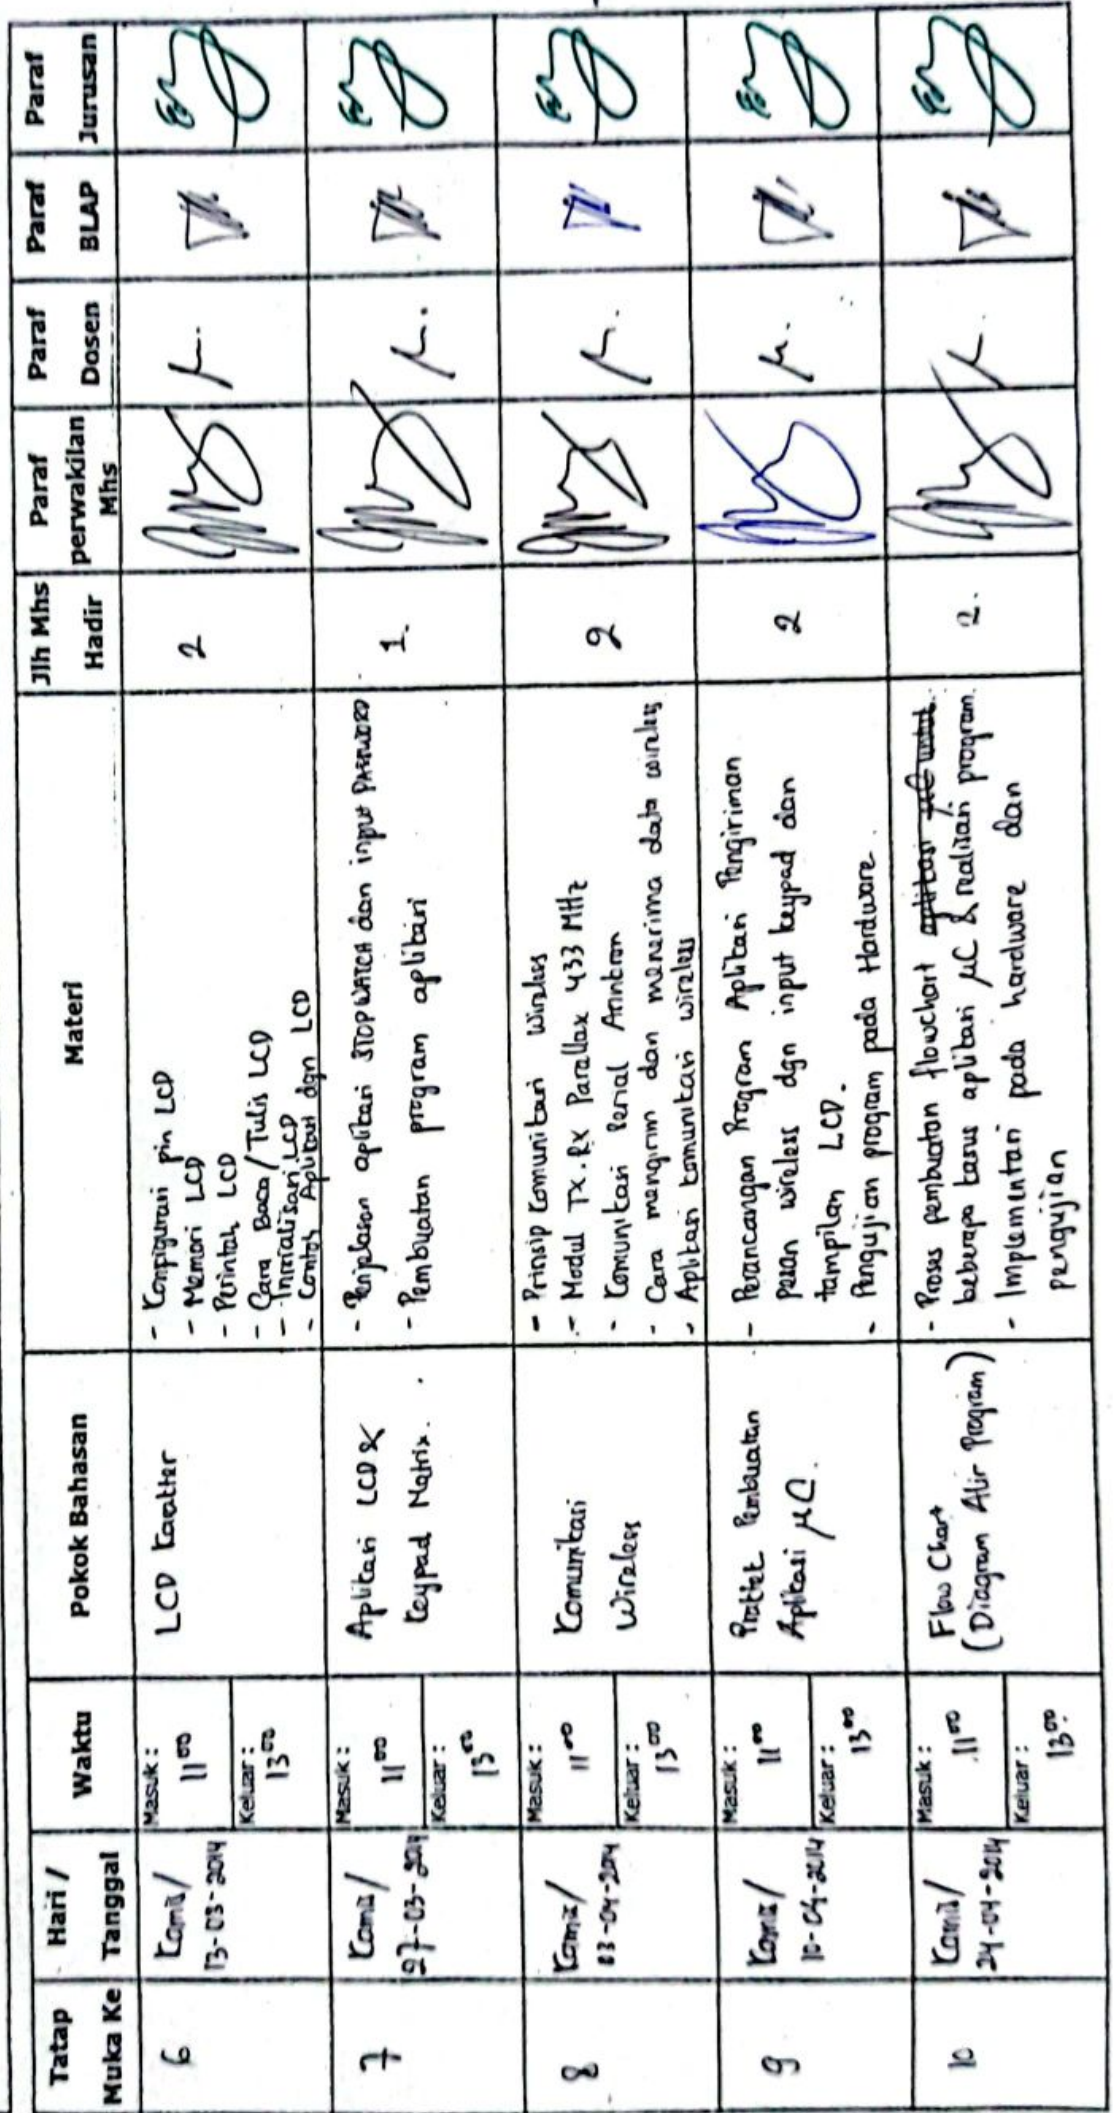 Tatap Muka Ke
Hari / Tanggal
Waktu
Pokok Bahasan
Materi
Jlh Mhs Hadir
Paraf perwakilan Mhs
Paraf Dosen
Paraf BLAP
Paraf Jurusan
6
Kamis/
13-03-2014
Masuk :
11⁰⁰
Keluar :
13⁰⁰
LCD Karakter
- Konpigurasi pin LCD
- Memori LCD
- Perintah LCD
- Cara Baca/Tulis LCD
- Inisialisasi LCD
- Contoh Aplikasi dgn LCD
2
7
Kamis/
27-03-2014
Masuk :
11⁰⁰
Keluar :
13⁰⁰
Aplikasi LCD &
Keypad Matrix.
- Penjelasan aplikasi STOPWATCH dan input PASSWORD
- Pembuatan program aplikasi
1.
8
Kamis/
03-04-2014
Masuk :
11⁰⁰
Keluar :
13⁰⁰
Komunikasi
Wireless
- Prinsip Komunikasi Wireless
- Modul TX.RX Parallax 433 MHz
- Komunikasi Serial Asinkron
- Cara mengirim dan menerima data wireless
- Aplikasi komunikasi wireless
2
9
Kamis/
10-04-2014
Masuk :
11⁰⁰
Keluar :
13⁰⁰
Praktek Pembuatan
Aplikasi µC.
- Perancangan Program Aplikasi Pengiriman
pesan wireless dgn input keypad dan
tampilan LCD.
- Pengujian program pada Hardware.
2
10
Kamis/
24-04-2014
Masuk :
11⁰⁰
Keluar :
13⁰⁰
Flow Chart
(Diagram Alir Program)
- Proses pembuatan flowchart aplikasi µC untuk
beberapa kasus aplikasi µC & realisasi program.
- Implementasi pada hardware dan
pengujian
2.